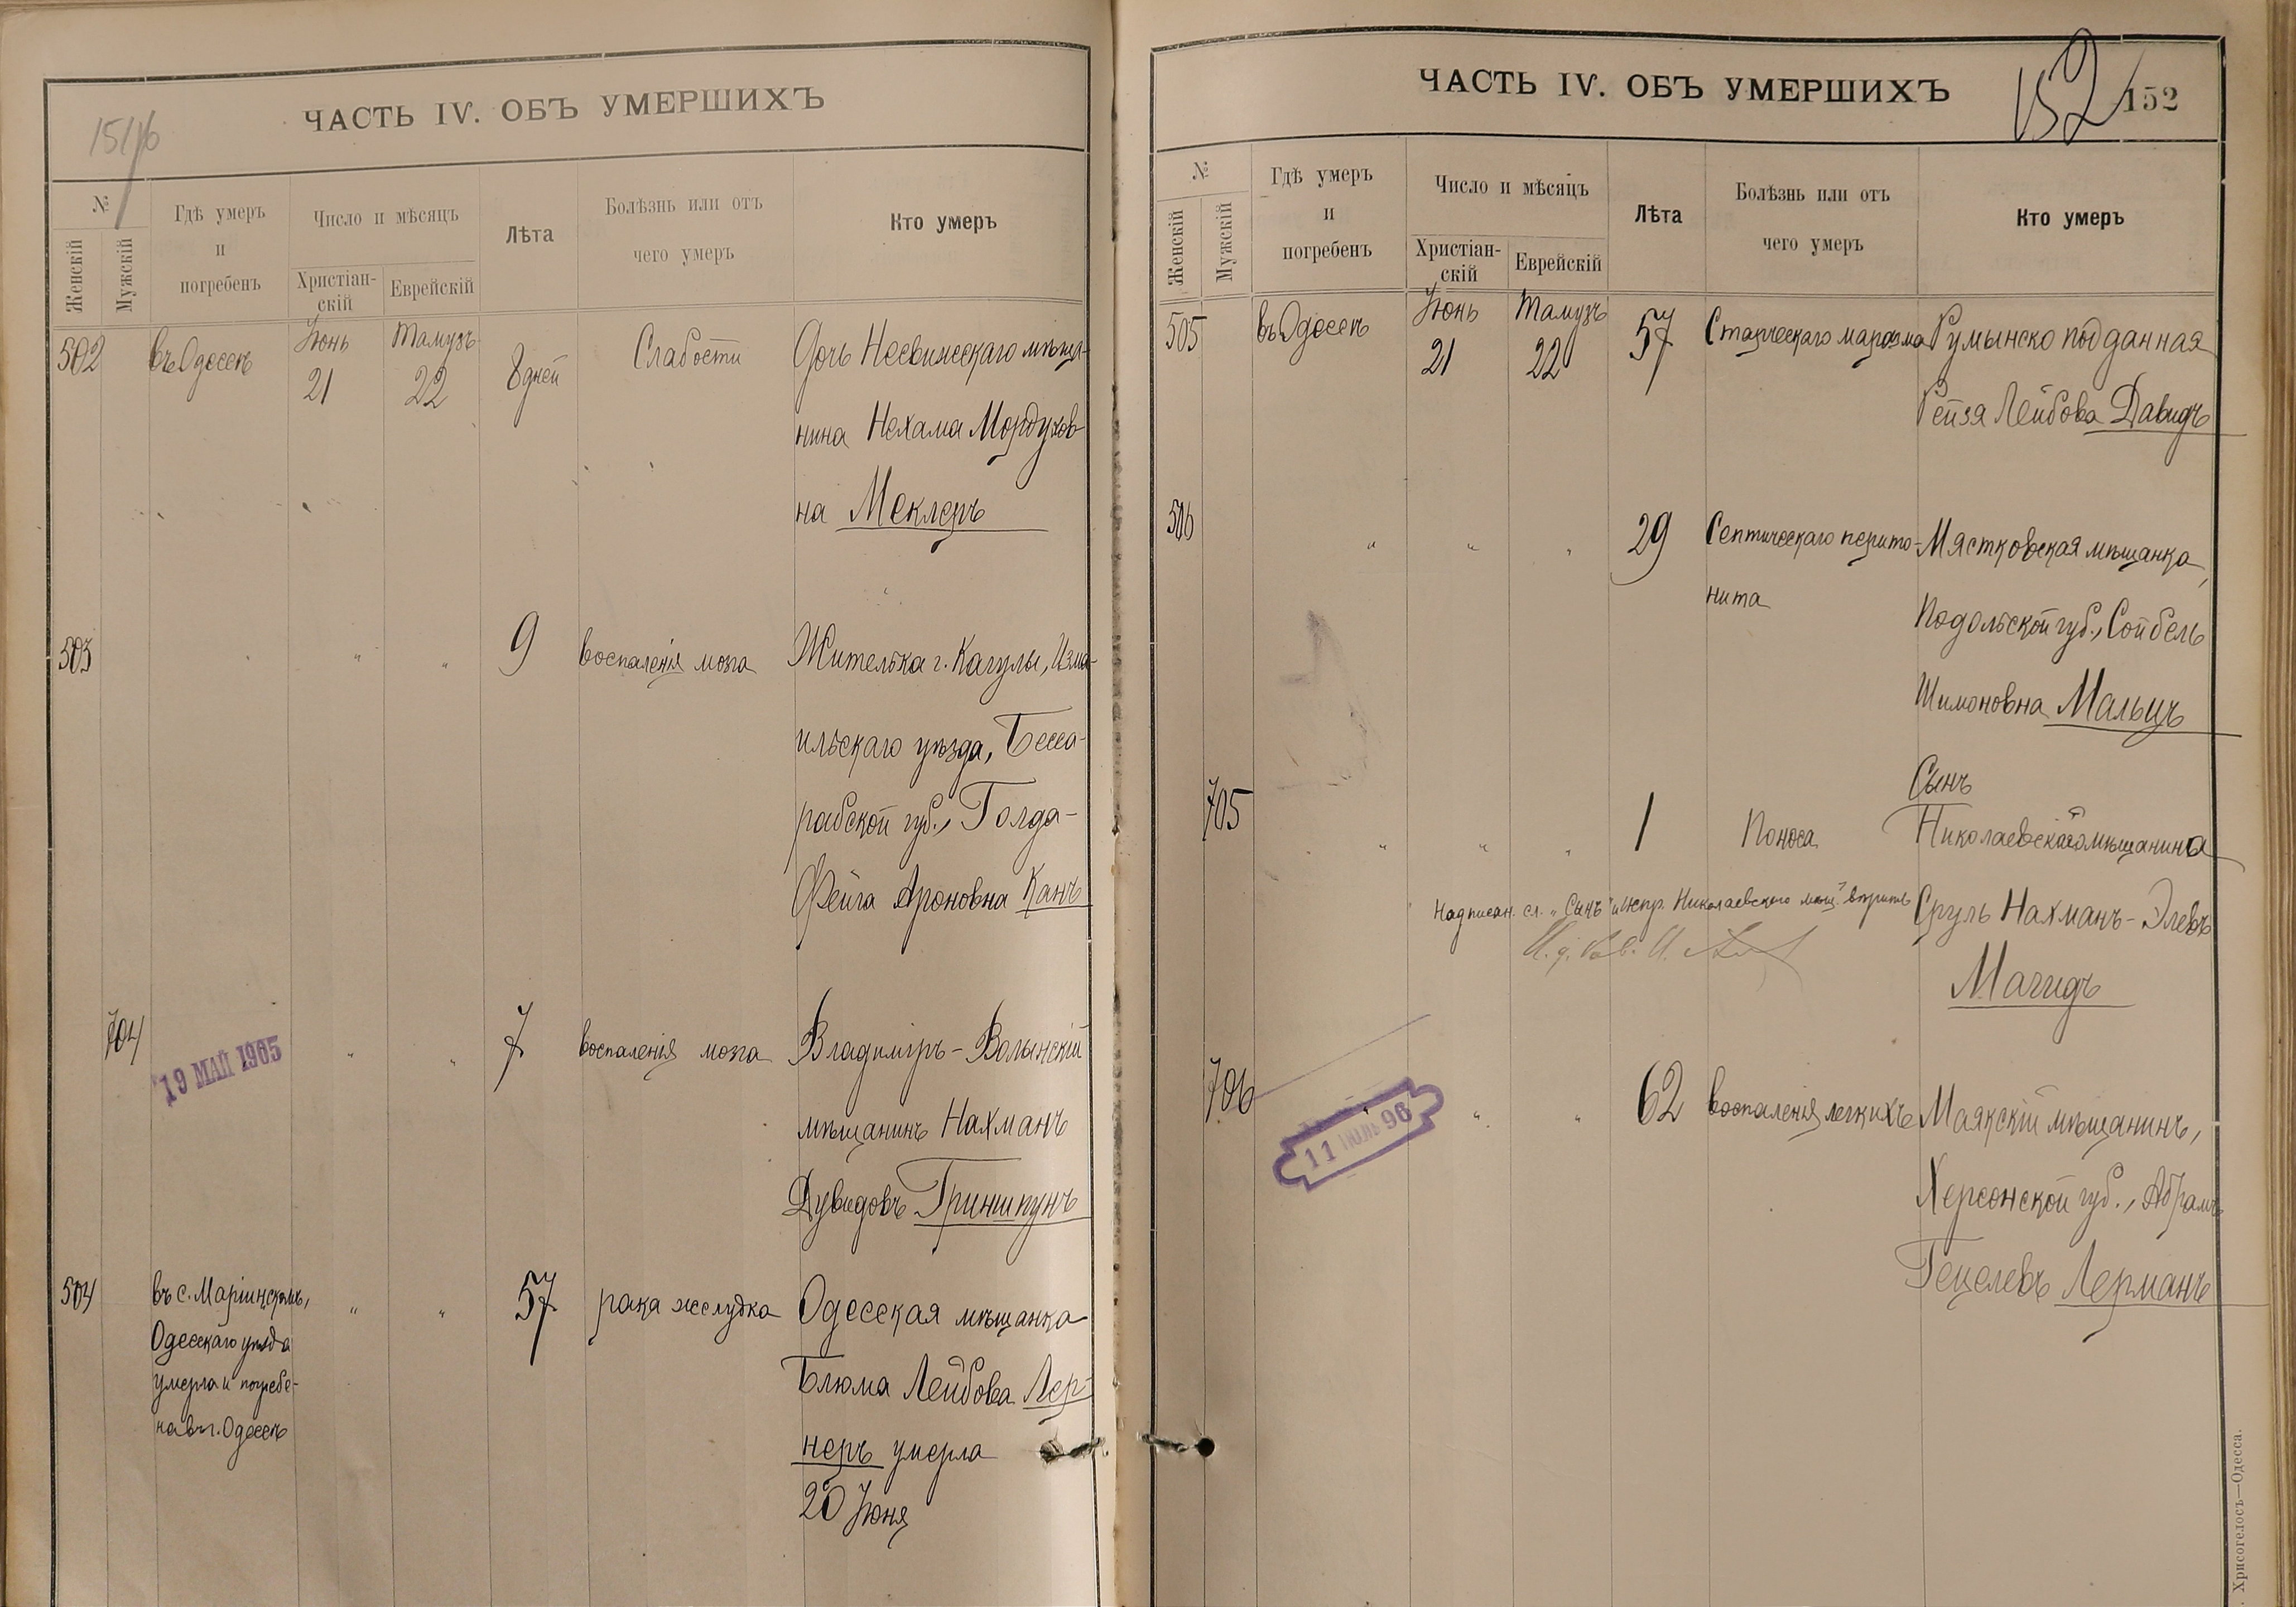 151/16
ЧАСТЬ IV. ОБЪ УМЕРШИХЪ
№
Женскій
Мужскій
Гдѣ умеръ
и
погребенъ
Число и мѣсяцъ
Христіан-
скій
Еврейскій
Лѣта
Болѣзнь или отъ
чего умеръ
Кто умеръ
502
въ Одессѣ
Іюнь
21
Тамузъ
22
8 дней
Слабости
Дочь Несвижскаго мѣща-
нина Нехама Мордухов-
на Меклеръ
503
"
"
"
9
воспаленія мозга
Жителька г. Кагулы, Изма-
ильскаго уѣзда, Бесса-
рабской губ., Голда-
Фейга Ароновна Канъ
704
19 МАЙ 1905
"
"
7
воспаленія мозга
Владиміръ-Волынскій
мѣщанинъ Нахманъ
Дувидовъ Гриншпунъ
504
въ с. Маріинскомъ,
Одесскаго уѣзда
умерла и погребе-
на въ г. Одессѣ
"
"
57
рака желудка
Одесская мѣщанка
Блюма Лейбова Лер-
неръ умерла
20 Іюня
ЧАСТЬ IV. ОБЪ УМЕРШИХЪ
152
152
№
Женскій
Мужскій
Гдѣ умеръ
и
погребенъ
Число и мѣсяцъ
Христіан-
скій
Еврейскій
Лѣта
Болѣзнь или отъ
чего умеръ
Кто умеръ
505
въ Одессѣ
Іюнь
21
Тамузъ
22
57
Старческаго маразма
Румынско подданная
Рейзя Лейбова Давидъ
506
"
"
"
29
Септическаго перито-
нита
Мястковская мѣщанка,
Подольской губ., Сойбель
Шимоновна Мальцъ
705
"
"
"
1
Поноса
Сынъ
Николаевскаго мѣщанина
Сруль Нахманъ-Элевъ
Магидъ
Надписан. сл. „Сынъ" и испр. Николаевского мѣщ. вѣрить
И. д.
706
11 ИЮЛЬ 96
"
"
62
воспаленія легкихъ
Маякскій мѣщанинъ,
Херсонской губ., Абрамъ
Гецелевъ Лерманъ
Хрисогелосъ—Одесса.